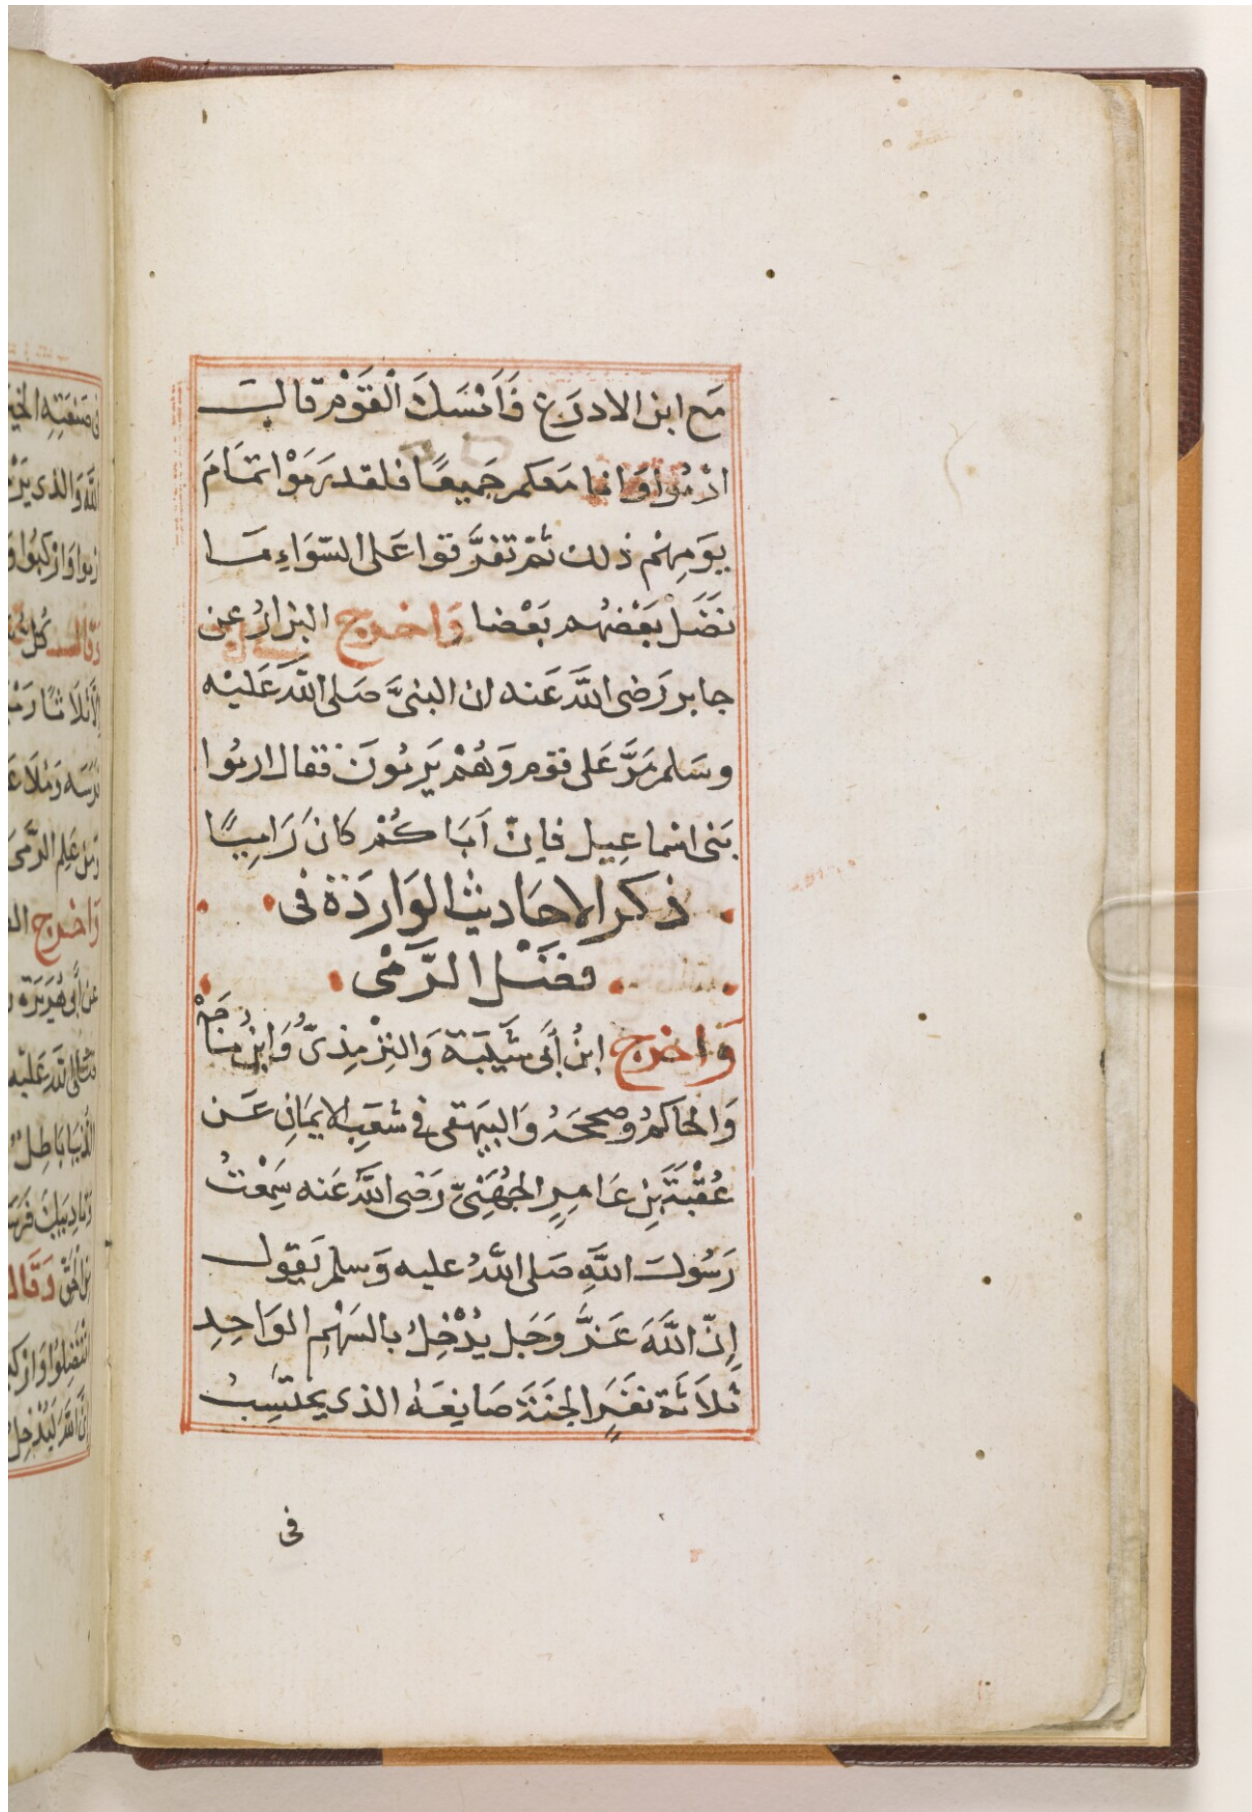 مَع ابن الادرَع فَاَمْسَكَ الْقَوْمُ قالـــ
ارْمُوا وَانا مَعَكم جَميعًا فلقد رَمَوْا تمَامَ
يوَمِهِمْ ذلك ثمّ تفرَّقوا عَلى السّوَاءِ مَا
نَضَلَ بَعْضُهم بَعْضا وَاخرج البزارُ عن
جابر رَضى اللَّه عَنه ان النبىَّ صَلى اللَّه عَليْه
وسَلم مَرَّ عَلى قوْم وَهُمْ يَرمُونَ فقال ارمُوا
بَنى اسْماعِيل فاِنّ اَبَا كُمْ كانَ رَامِيًا
ذكر الاحَاديث الوَاردَة فى
فضَل الرَّمْى
وَاخرج ابنُ أبى شَيبَة وَالترْمِذىُّ وَابنُ مَاجَهْ
وَالحاكمُ وصححَهُ وَالبيَهقى فى شعَبِ الايمَانِ عَن
عُقْبَةَ بنِ عَامِرٍ الجُهَنِىّ رَضى اللَّه عَنه سَمِعْتُ
رَسُولَ اللَّهِ صَلى اللَّهُ عليه وَسلم يَقول
اِنّ اللَّهَ عَزَّ وَجَل يُدْخِلُ بالسَهْمِ الوَاحِدِ
ثلاَثَة نفَرٍ الجنَةَ صَانِعَهُ الذى يحتَسِبُ
فى